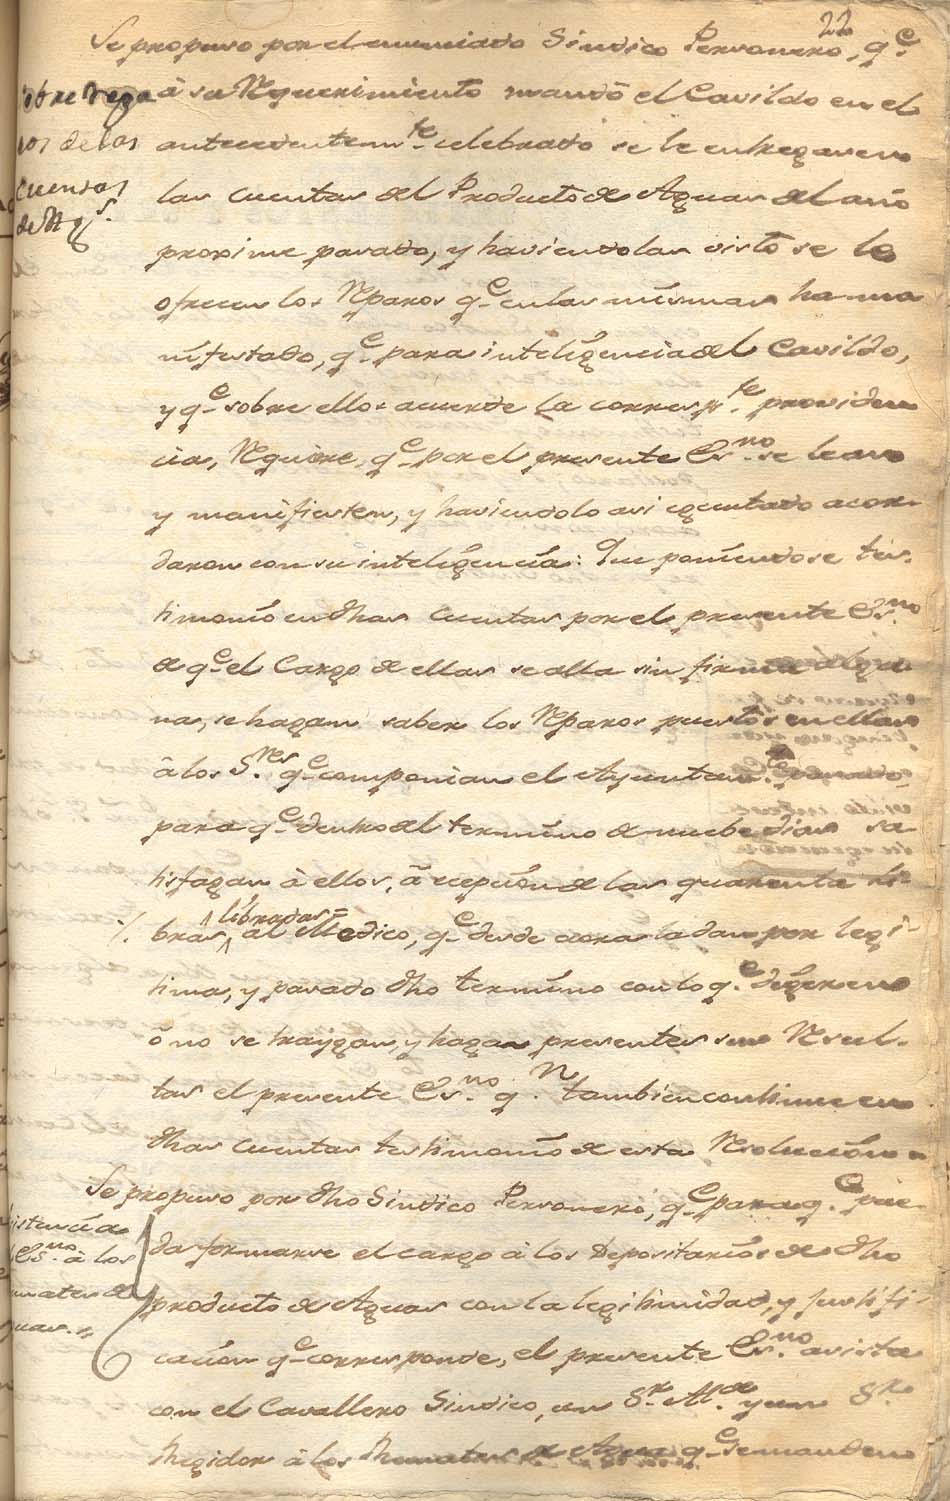 22
Se propuso por el enunciado Sindico Personero, q.e
à su Requerimiento mandó el Cavildo en el
antecedentem.te celebrado se le entregasen
las Cuentas del Producto de Aguas del año
proximo pasado, y haviendolas visto se le
ofrecen los Reparos q.e en las mismas ha ma
nifestado, q.e para inteligencia del Cavildo,
y q.e sobre ellos acuerde la corresp.te providen
cia, Requiere, q.e por el presente Es.no se lean
y manifiesten, y haviendolo asi egecutado acor-
daron con su inteligencia: Que poniendose tes-
timonio en dhas Cuentas por el presente Es.no
de q.e el Cargo de ellas se alla sin firma algu
na, se hagan saber los Reparos puestos en ellas
â los S.res q.e componian el Ayuntam.to pasado
para q.e dentro del termino de nuebe dias sa-
tisfagan à ellos, â ecepcion de las quarenta li-
bras, libradas= al Medico, q.e desde aora la dan por legi-
tima, y pasado dho termino con lo q.e digeren
ô no se traygan, y hagan presentes sus Resul-
tas el presente Es.no q.n tambien continue en
dhas Cuentas testimonio de esta Resolucion
Se propuso por dho Sindico Personero, q.e para q.e pue-
da formarse el cargo à los Depositarios de dho
producto de Aguas con la legitimidad, y justifi-
cacion q.e corresponde, el presente Es.no asista
con el Cavallero Sindico, un S.r Al.de y un S.r
Regidor à los Remates de Agua q.e se manden
Sobre Repa
ros de las
Cuentas
de Ag.s
istencia
Es.no à los
mates de
uas.=